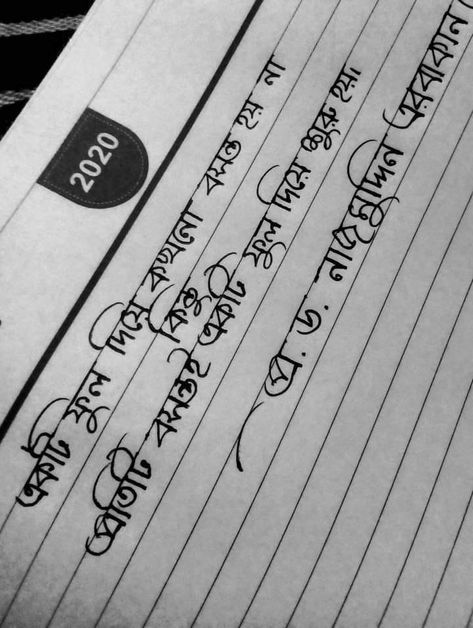 2020
একটি ফুল দিয়ে কখনো বসন্ত হয় না
কিন্তু
প্রতিটি বসন্তই একটি ফুল দিয়ে শুরু হয়।
প্র. ড. নাজমুদ্দিন এরবাকান